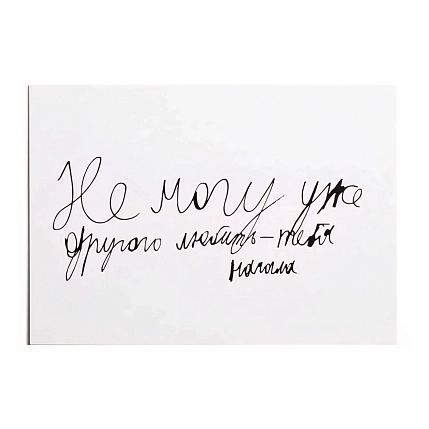 Не могу уже
другого любить-тебя
мало